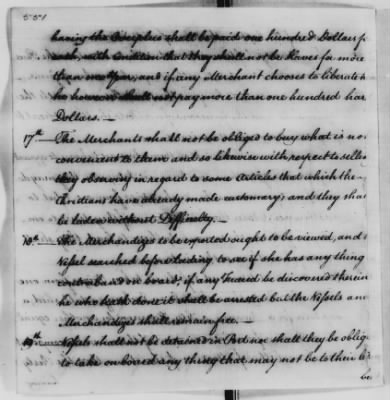 551
having the Overplus shall be paid one hundred Dollars f
each, with Condition that they shall not be Slaves for more
than one Year, and if any Merchant chooses to liberate
he however shall not pay more than one hundred hard
Dollars. —
17th — The Merchants shall not be obliged to buy what is no
convenient to them and so likewise with respect to sellin
they observing in regard to some Articles that which the
Christians have already made customary, and they sha
be laden without Difficulty. —
18th — The Merchandizes to be exported ought to be viewed, and
Vessel searched before lading to see if she has any thing
contraband on board; if any Fraud be discovered therein
he who hath done it shall be arrested but the Vessels an
Merchandizes shall remain free. —
19th — Vessels shall not be detained in Port nor shall they be oblig
to take on board any thing that may not be to their
be